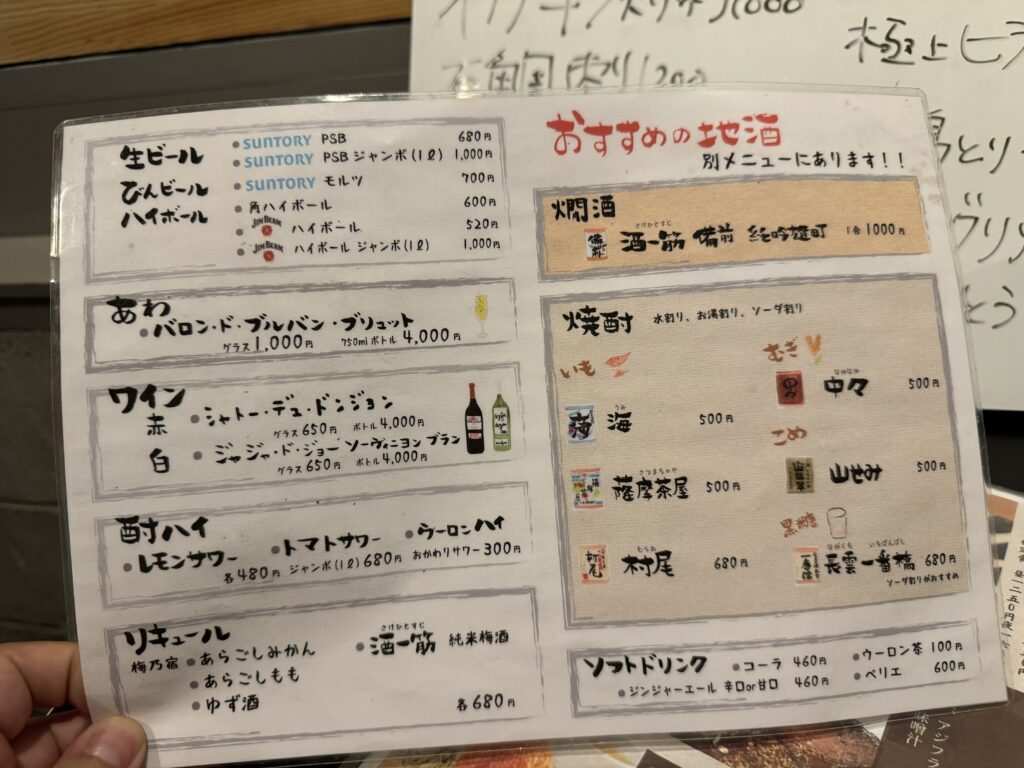 極上ヒラ
生ビール
SUNTORY PSB 680円
SUNTORY PSB ジャンボ(1ℓ) 1,000円
びんビール
SUNTORY モルツ 700円
ハイボール
角ハイボール 600円
JIM BEAM ハイボール 520円
JIM BEAM ハイボール ジャンボ(1ℓ) 1,000円
あわ
バロン・ド・ブルバン・ブリュット
グラス 1,000円 750mlボトル 4,000円
ワイン
赤 シャトー・デュ・ドンジョン
グラス 650円 ボトル 4,000円
白 ジャジャ・ド・ジョー ソーヴィニヨン ブラン
グラス 650円 ボトル 4,000円
酎ハイ
レモンサワー トマトサワー ウーロンハイ
各480円 ジャンボ(1ℓ)680円 おかわりサワー300円
リキュール
梅乃宿 あらごしみかん
あらごしもも
ゆず酒
さけひとすじ
酒一筋 純米梅酒
各680円
おすすめの地酒
別メニューにあります!!
燗酒
さけひとすじ
備前 酒一筋 備前 純吟雄町 1合 1000円
焼酎 水割り、お湯割り、ソーダ割り
いも
うみ
海 海 500円
さつまちゃや
薩摩茶屋 500円
むらお
村尾 村尾 680円
むぎ
なかなか
中々 中々 500円
こめ
山せみ 500円
黒糖
ながくも いちばんばし
長雲 一番橋 680円
ソーダ割りがおすすめ
ソフトドリンク
コーラ 460円
ウーロン茶 100円
ジンジャーエール 辛口or甘口 460円
ペリエ 600円
アジフラ
味噌汁